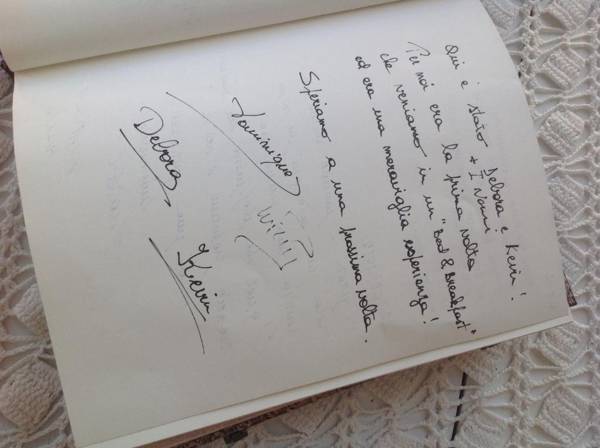 Qui è stato Debora e Kevin!
+ I Nonni
Per noi era la prima volta
che veniamo in un "Bed & Breakfast"
ed era una meraviglia esperienza!
Speriamo a una prossima volta.
Dominique
Willy
Debora
Kevin